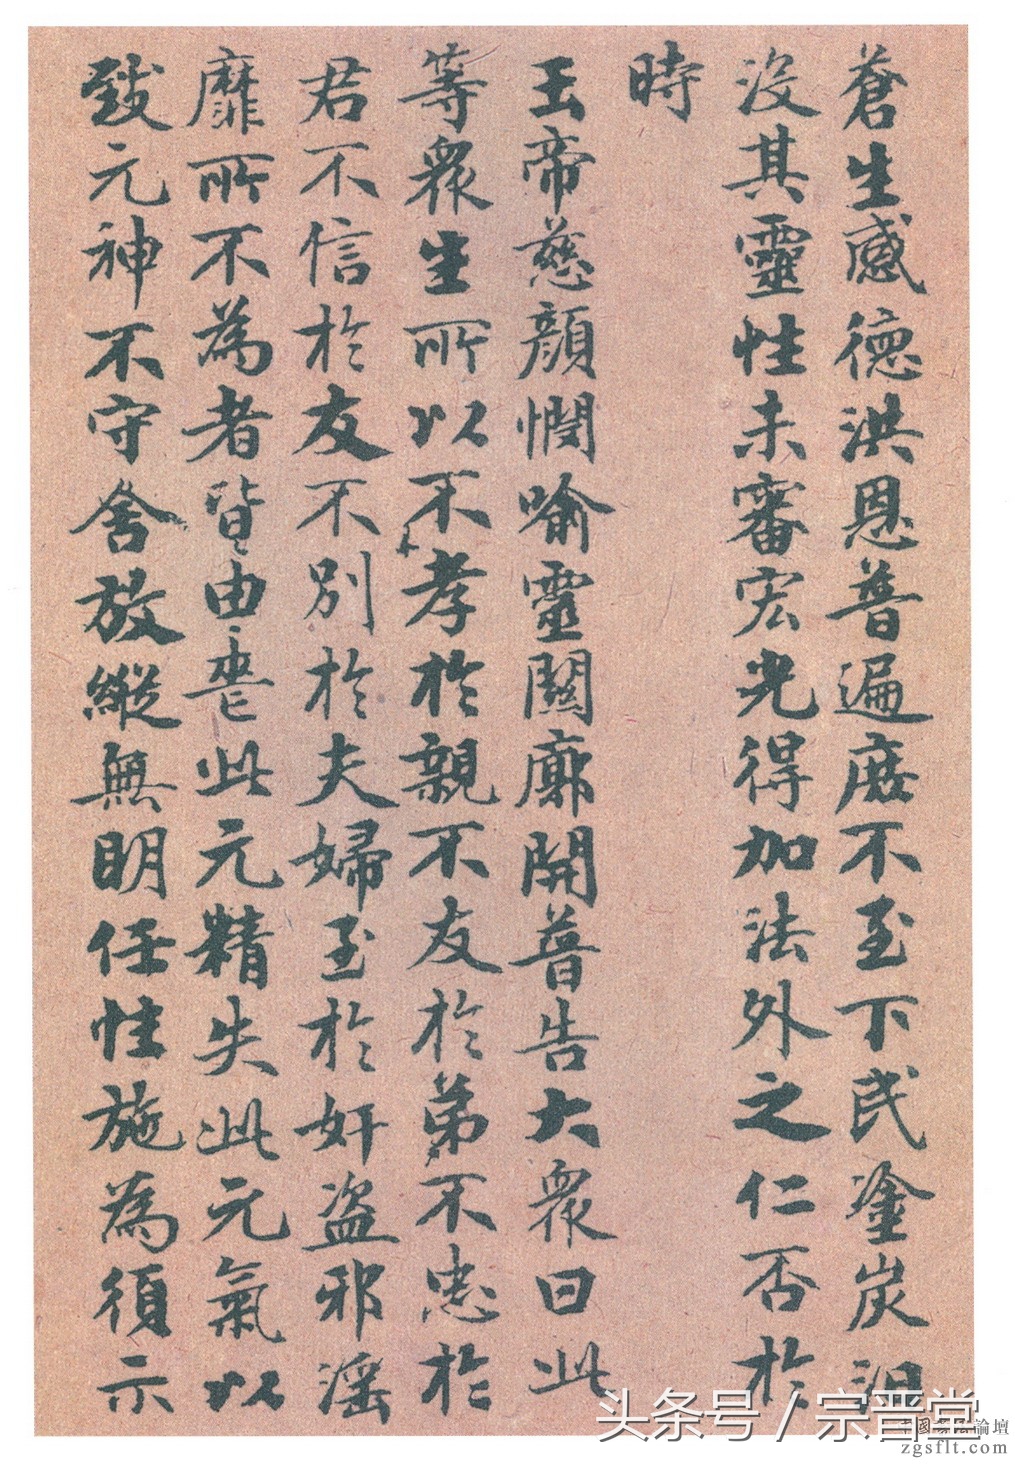 蒼生感德洪恩普遍庶不至下民塗炭汩
沒其靈性未審宏光得加法外之仁否於
時
玉帝慈顏憫喻靈關廓開普告大眾曰此
等眾生所以不孝於親不友於弟不忠於
君不信於友不別於夫婦至於奸盜邪淫
靡所不為者皆由喪此元精失此元氣以
致元神不守舍放縱無明任性施為須示
头条号 / 宗晋堂
論壇
zgsflt.com